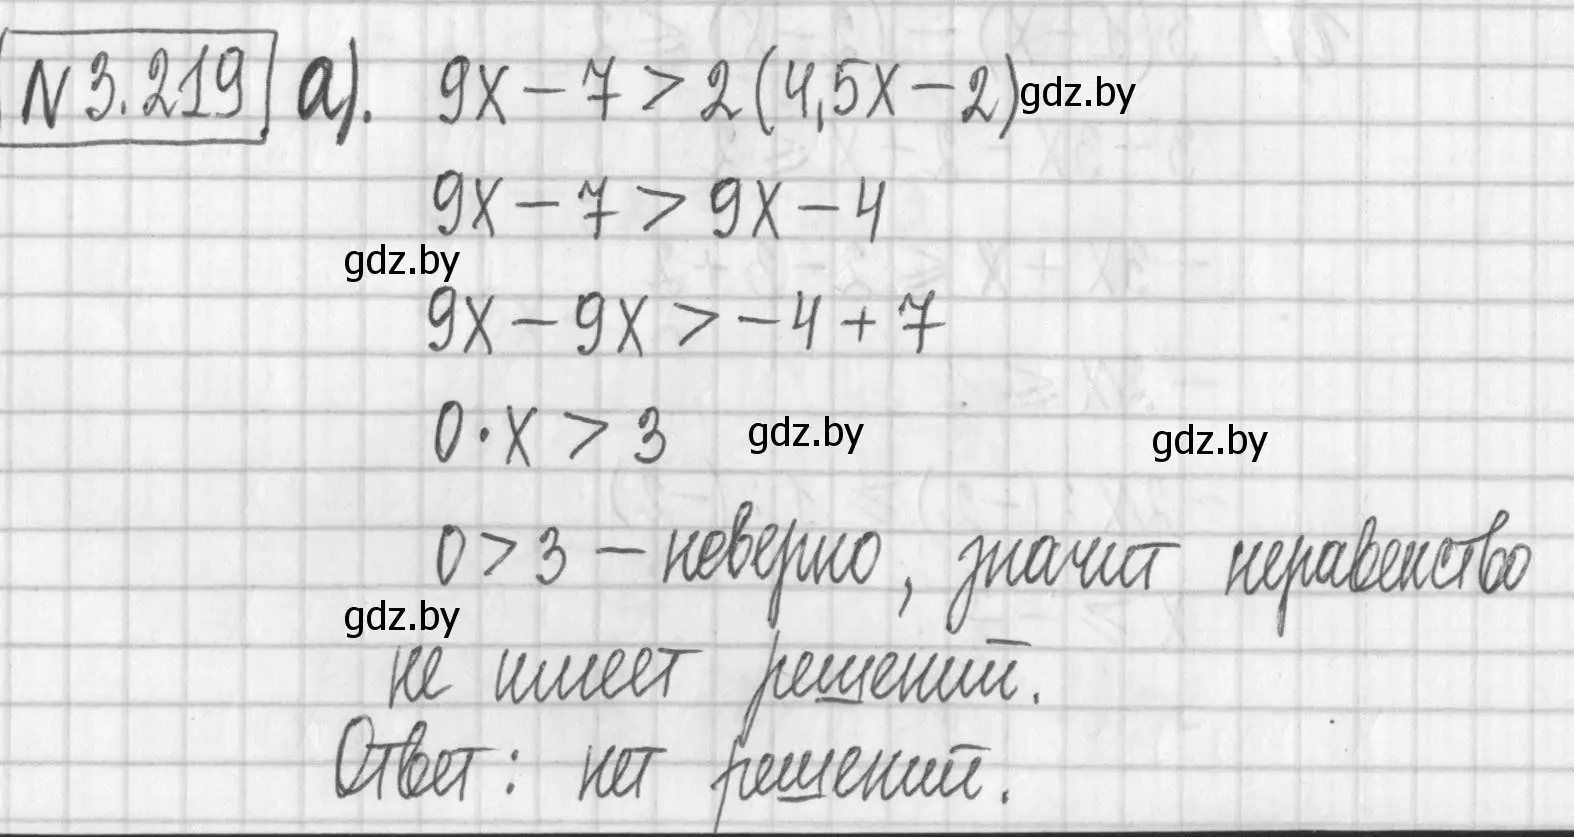 N 3.219 а). 9x − 7 > 2(4,5x − 2) gdz.by
9x − 7 > 9x − 4
gdz.by
9x − 9x > −4 + 7
0·x > 3 gdz.by gdz.by
0 > 3 — неверно, значит неравенство
gdz.by
не имеет решений.
Ответ: нет решений.